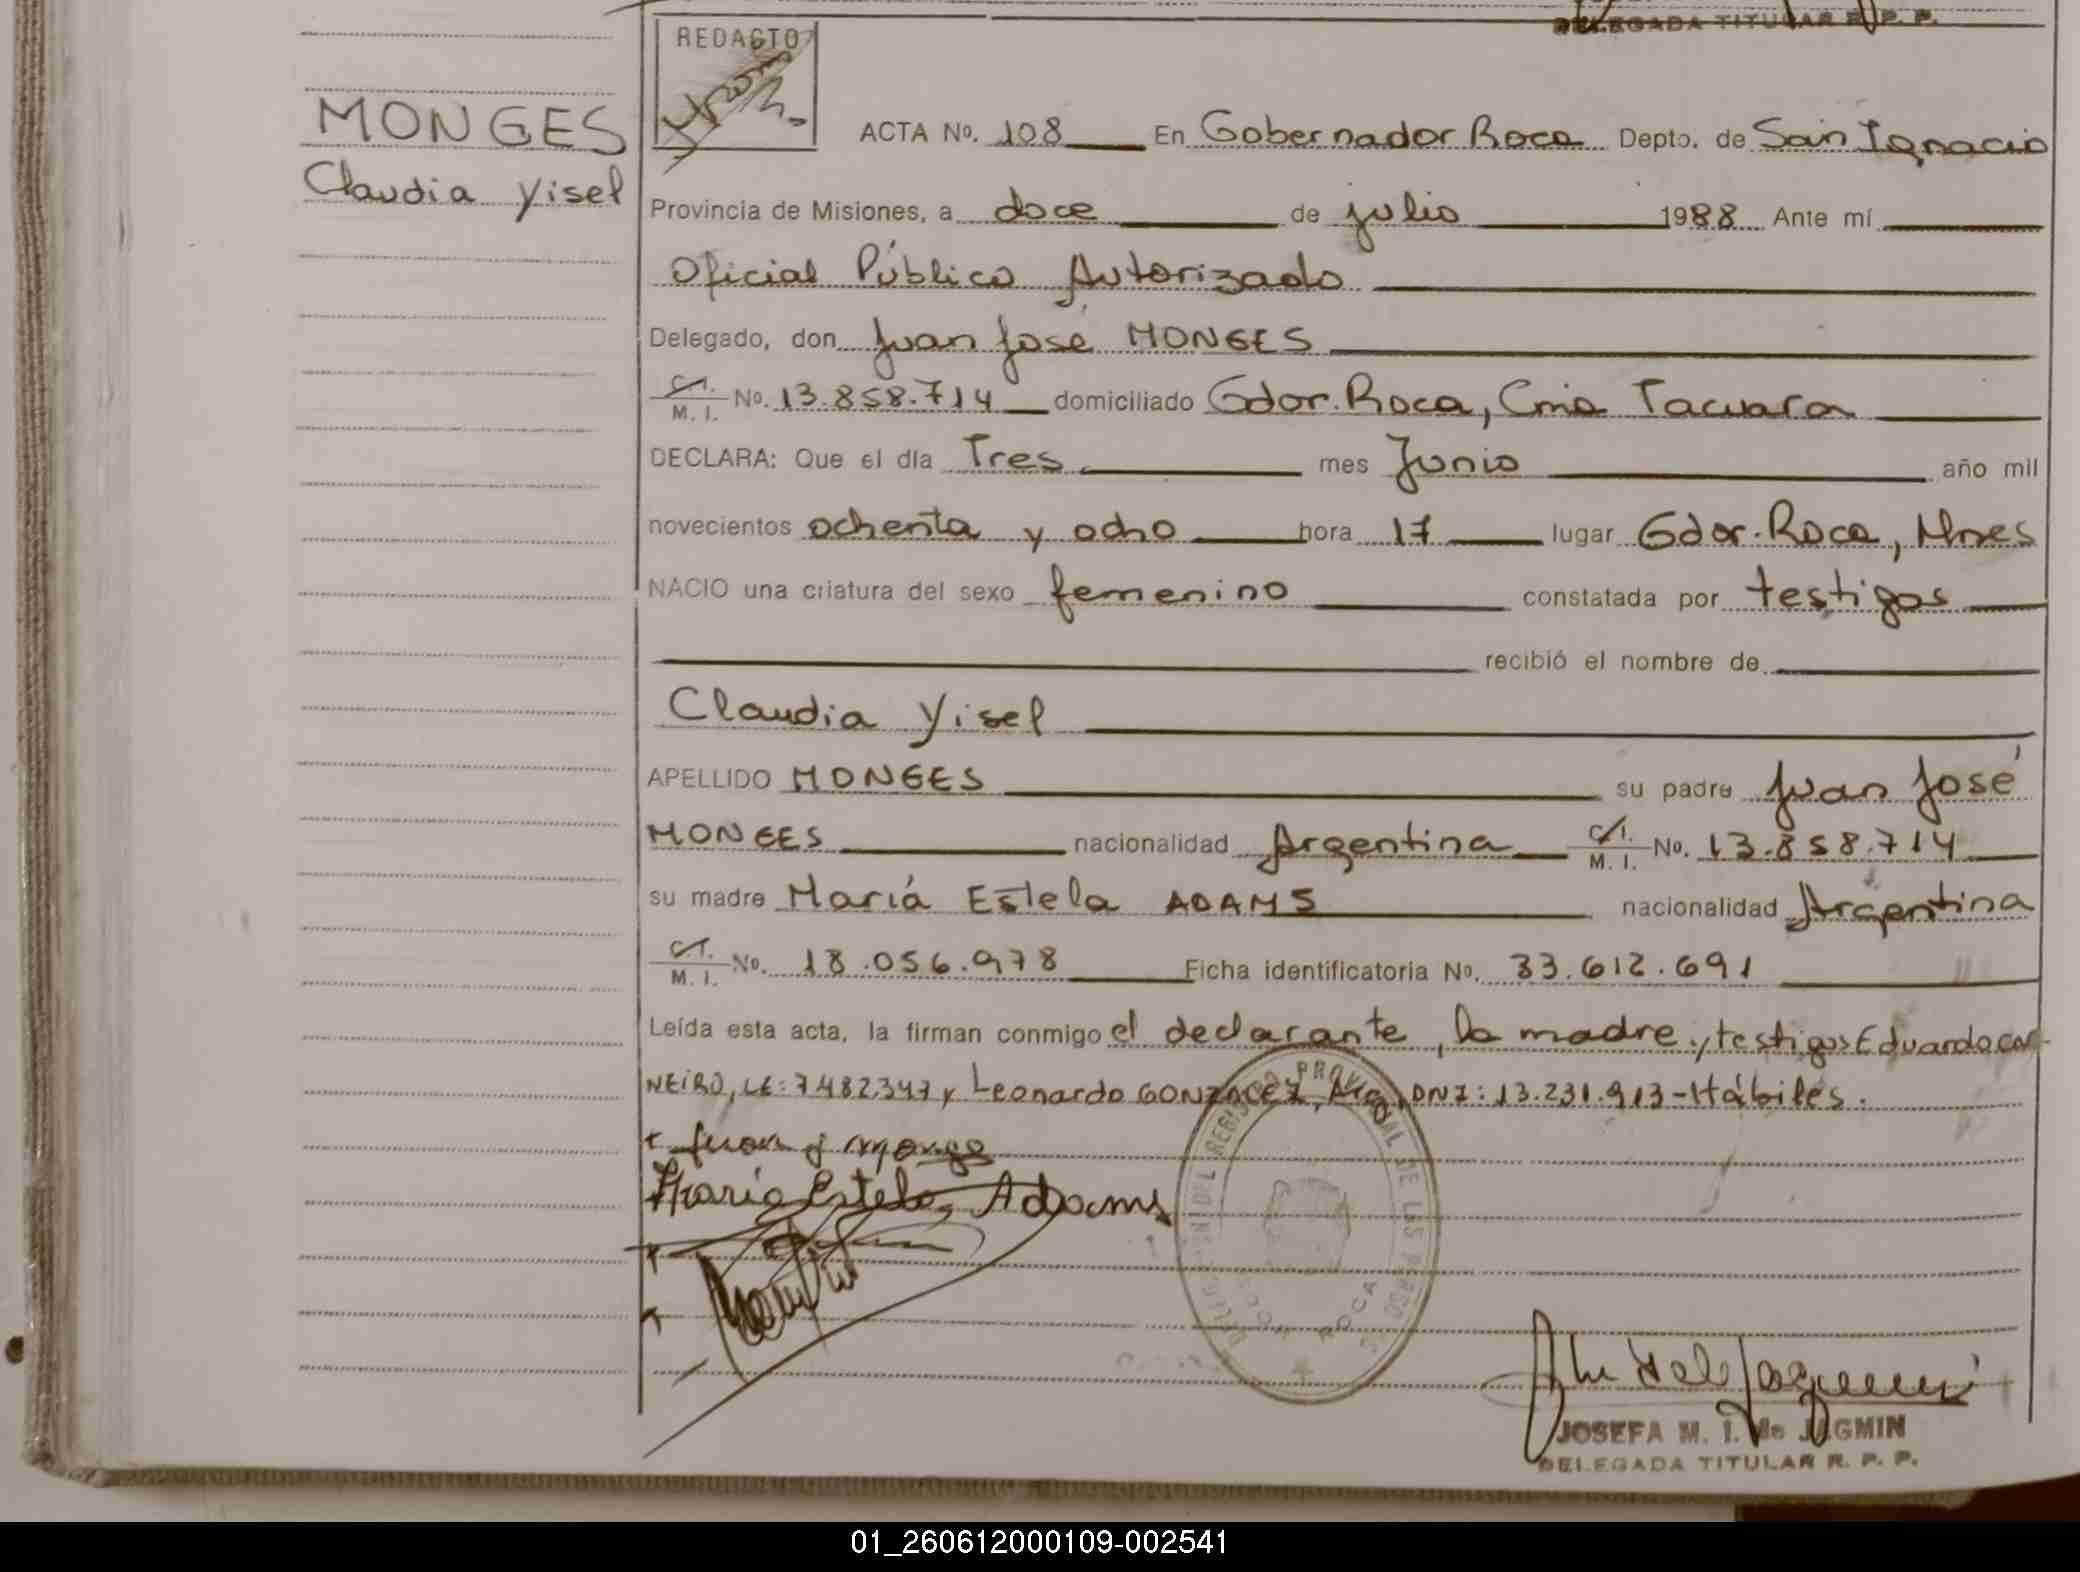 DELEGADA TITULAR R. P. P.
REDACTO
MONGES
Claudia Yisel
ACTA No. 108 En Gobernador Roca Depto. de San Ignacio
Provincia de Misiones, a doce de julio 1988 Ante mí
Oficial Público Autorizado
Delegado, don Juan José MONGES
C.I. M. I. No. 13.858.714 domiciliado Gdor. Roca, Cnia Tacuara
DECLARA: Que el día Tres mes Junio año mil
novecientos ochenta y ocho hora 17 lugar Gdor. Roca, Mnes
NACIO una criatura del sexo femenino constatada por testigos
recibió el nombre de
Claudia Yisel
APELLIDO MONGES su padre Juan José
MONGES nacionalidad Argentina C.I. M. I. No. 13.858.714
su madre María Estela ADAMS nacionalidad Argentina
C.I. M. I. No. 18.056.978 Ficha identificatoria No. 33.612.691
Leída esta acta, la firman conmigo el declarante, la madre, testigos Eduardo CAR-
NEIRO, LE: 7.482.347 y Leonardo GONZALEZ, Arg, DNI: 13.231.913 - Hábiles.
Juan J Monge
María Estela Adams
DELEGACION DEL REGISTRO PROVINCIAL DE LAS PERSONAS
GDOR ROCA
JOSEFA M. I. de JAGMIN
DELEGADA TITULAR R. P. P.
01_260612000109-002541